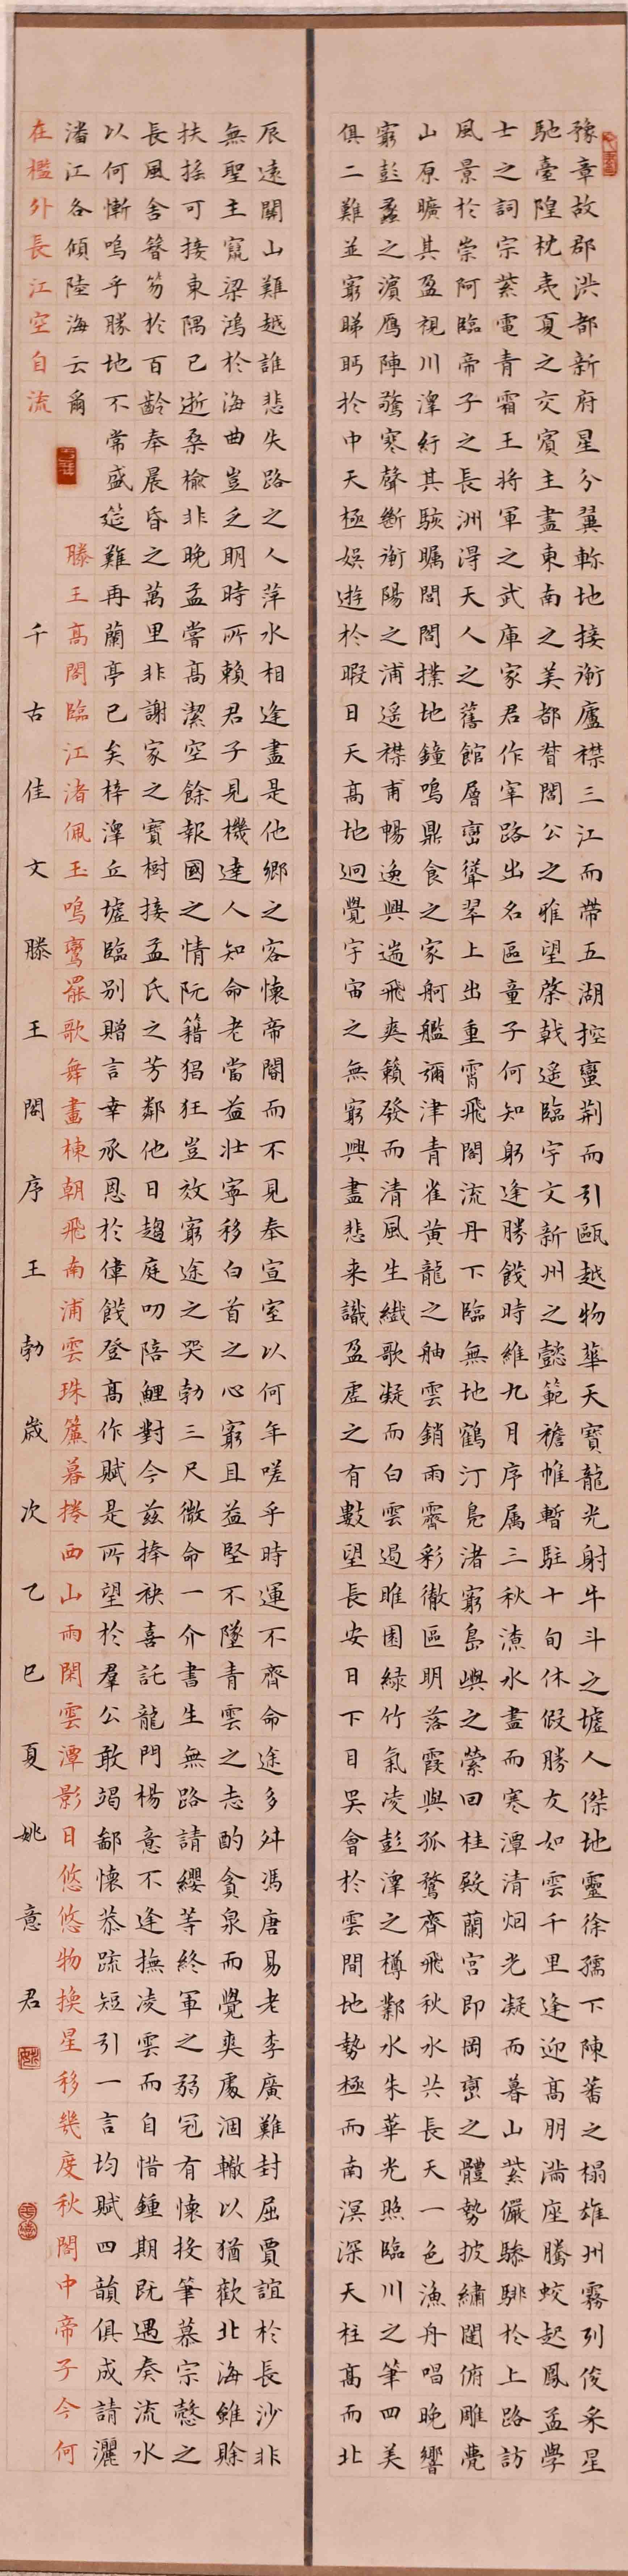 豫章故郡洪都新府星分翼軫地接衡廬襟三江而帶五湖控蠻荊而引甌越物華天寶龍光射牛斗之墟人傑地靈徐孺下陳蕃之榻雄州霧列俊采星
馳臺隍枕夷夏之交賓主盡東南之美都督閻公之雅望棨戟遙臨宇文新州之懿範襜帷暫駐十旬休假勝友如雲千里逢迎高朋滿座騰蛟起鳳孟學
士之詞宗紫電青霜王將軍之武庫家君作宰路出名區童子何知躬逢勝餞時維九月序属三秋潦水盡而寒潭清烟光凝而暮山紫儼驂騑於上路訪
風景於崇阿臨帝子之長洲得天人之舊館層巒聳翠上出重霄飛閣流丹下臨無地鶴汀鳧渚窮島嶼之縈回桂殿蘭宮即岡巒之體勢披繡闥俯雕甍
山原曠其盈視川澤紆其駭矚閭閻撲地鐘鳴鼎食之家舸艦彌津青雀黃龍之舳雲銷雨霽彩徹區明落霞與孤鶩齊飛秋水共長天一色漁舟唱晚響
窮彭蠡之濱鴈陣驚寒聲斷衡陽之浦遥襟甫暢逸興遄飛爽籟發而清風生纖歌凝而白雲遏睢園綠竹氣凌彭澤之樽鄴水朱華光照臨川之筆四美
俱二難並窮睇眄於中天極娛遊於暇日天高地迥覺宇宙之無窮興盡悲来識盈虛之有數望長安日下目吳會於雲間地勢極而南溟深天柱高而北
辰遠關山難越誰悲失路之人萍水相逢盡是他鄉之客懷帝閽而不見奉宣室以何年嗟乎時運不齊命途多舛馮唐易老李廣難封屈賈誼於長沙非
無聖主竄梁鴻於海曲豈乏明時所賴君子見機達人知命老當益壯寧移白首之心窮且益堅不墜青雲之志酌貪泉而覺爽處涸轍以猶歡北海雖賖
扶搖可接東隅已逝桑榆非晚孟嘗高潔空餘報國之情阮籍猖狂豈效窮途之哭勃三尺微命一介書生無路請纓等終軍之弱冠有懷投筆慕宗愨之
長風舍簪笏於百齡奉晨昏之萬里非謝家之寶樹接孟氏之芳鄰他日趨庭叨陪鯉對今兹捧袂喜託龍門楊意不逢撫凌雲而自惜鍾期既遇奏流水
以何慚嗚乎勝地不常盛筵難再蘭亭已矣梓澤丘墟臨別贈言幸承恩於偉餞登高作賦是所望於羣公敢竭鄙懷恭疏短引一言均賦四韻俱成請灑
潘江各傾陸海云爾 滕王高閣臨江渚佩玉鳴鸞罷歌舞畫棟朝飛南浦雲珠簾暮捲西山雨閑雲潭影日悠悠物換星移幾度秋閣中帝子今何
在檻外長江空自流
千古佳文滕王閣序王勃歲次乙巳夏姚意君